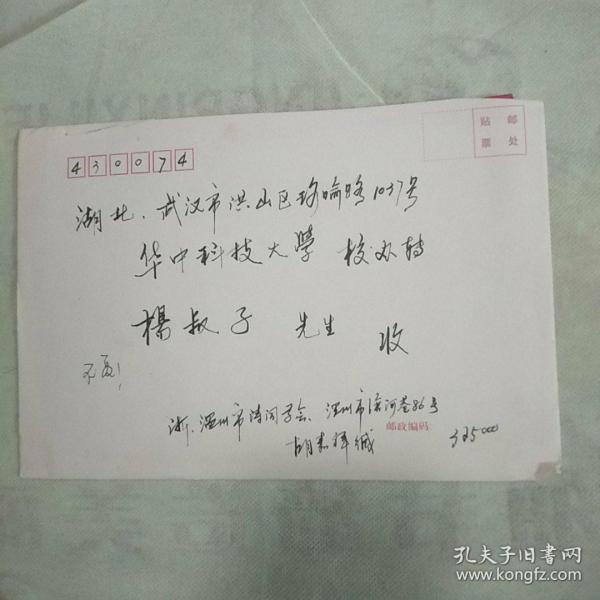 贴 邮
票 处
430074
湖北、武汉市洪山区珞喻路1037号
华中科技大学 校办转
楊叔子 先生 收
浙、温州市诗词学会、温州市
86号
邮政编码
325000
缄
孔夫子旧书网
www.kongfz.com